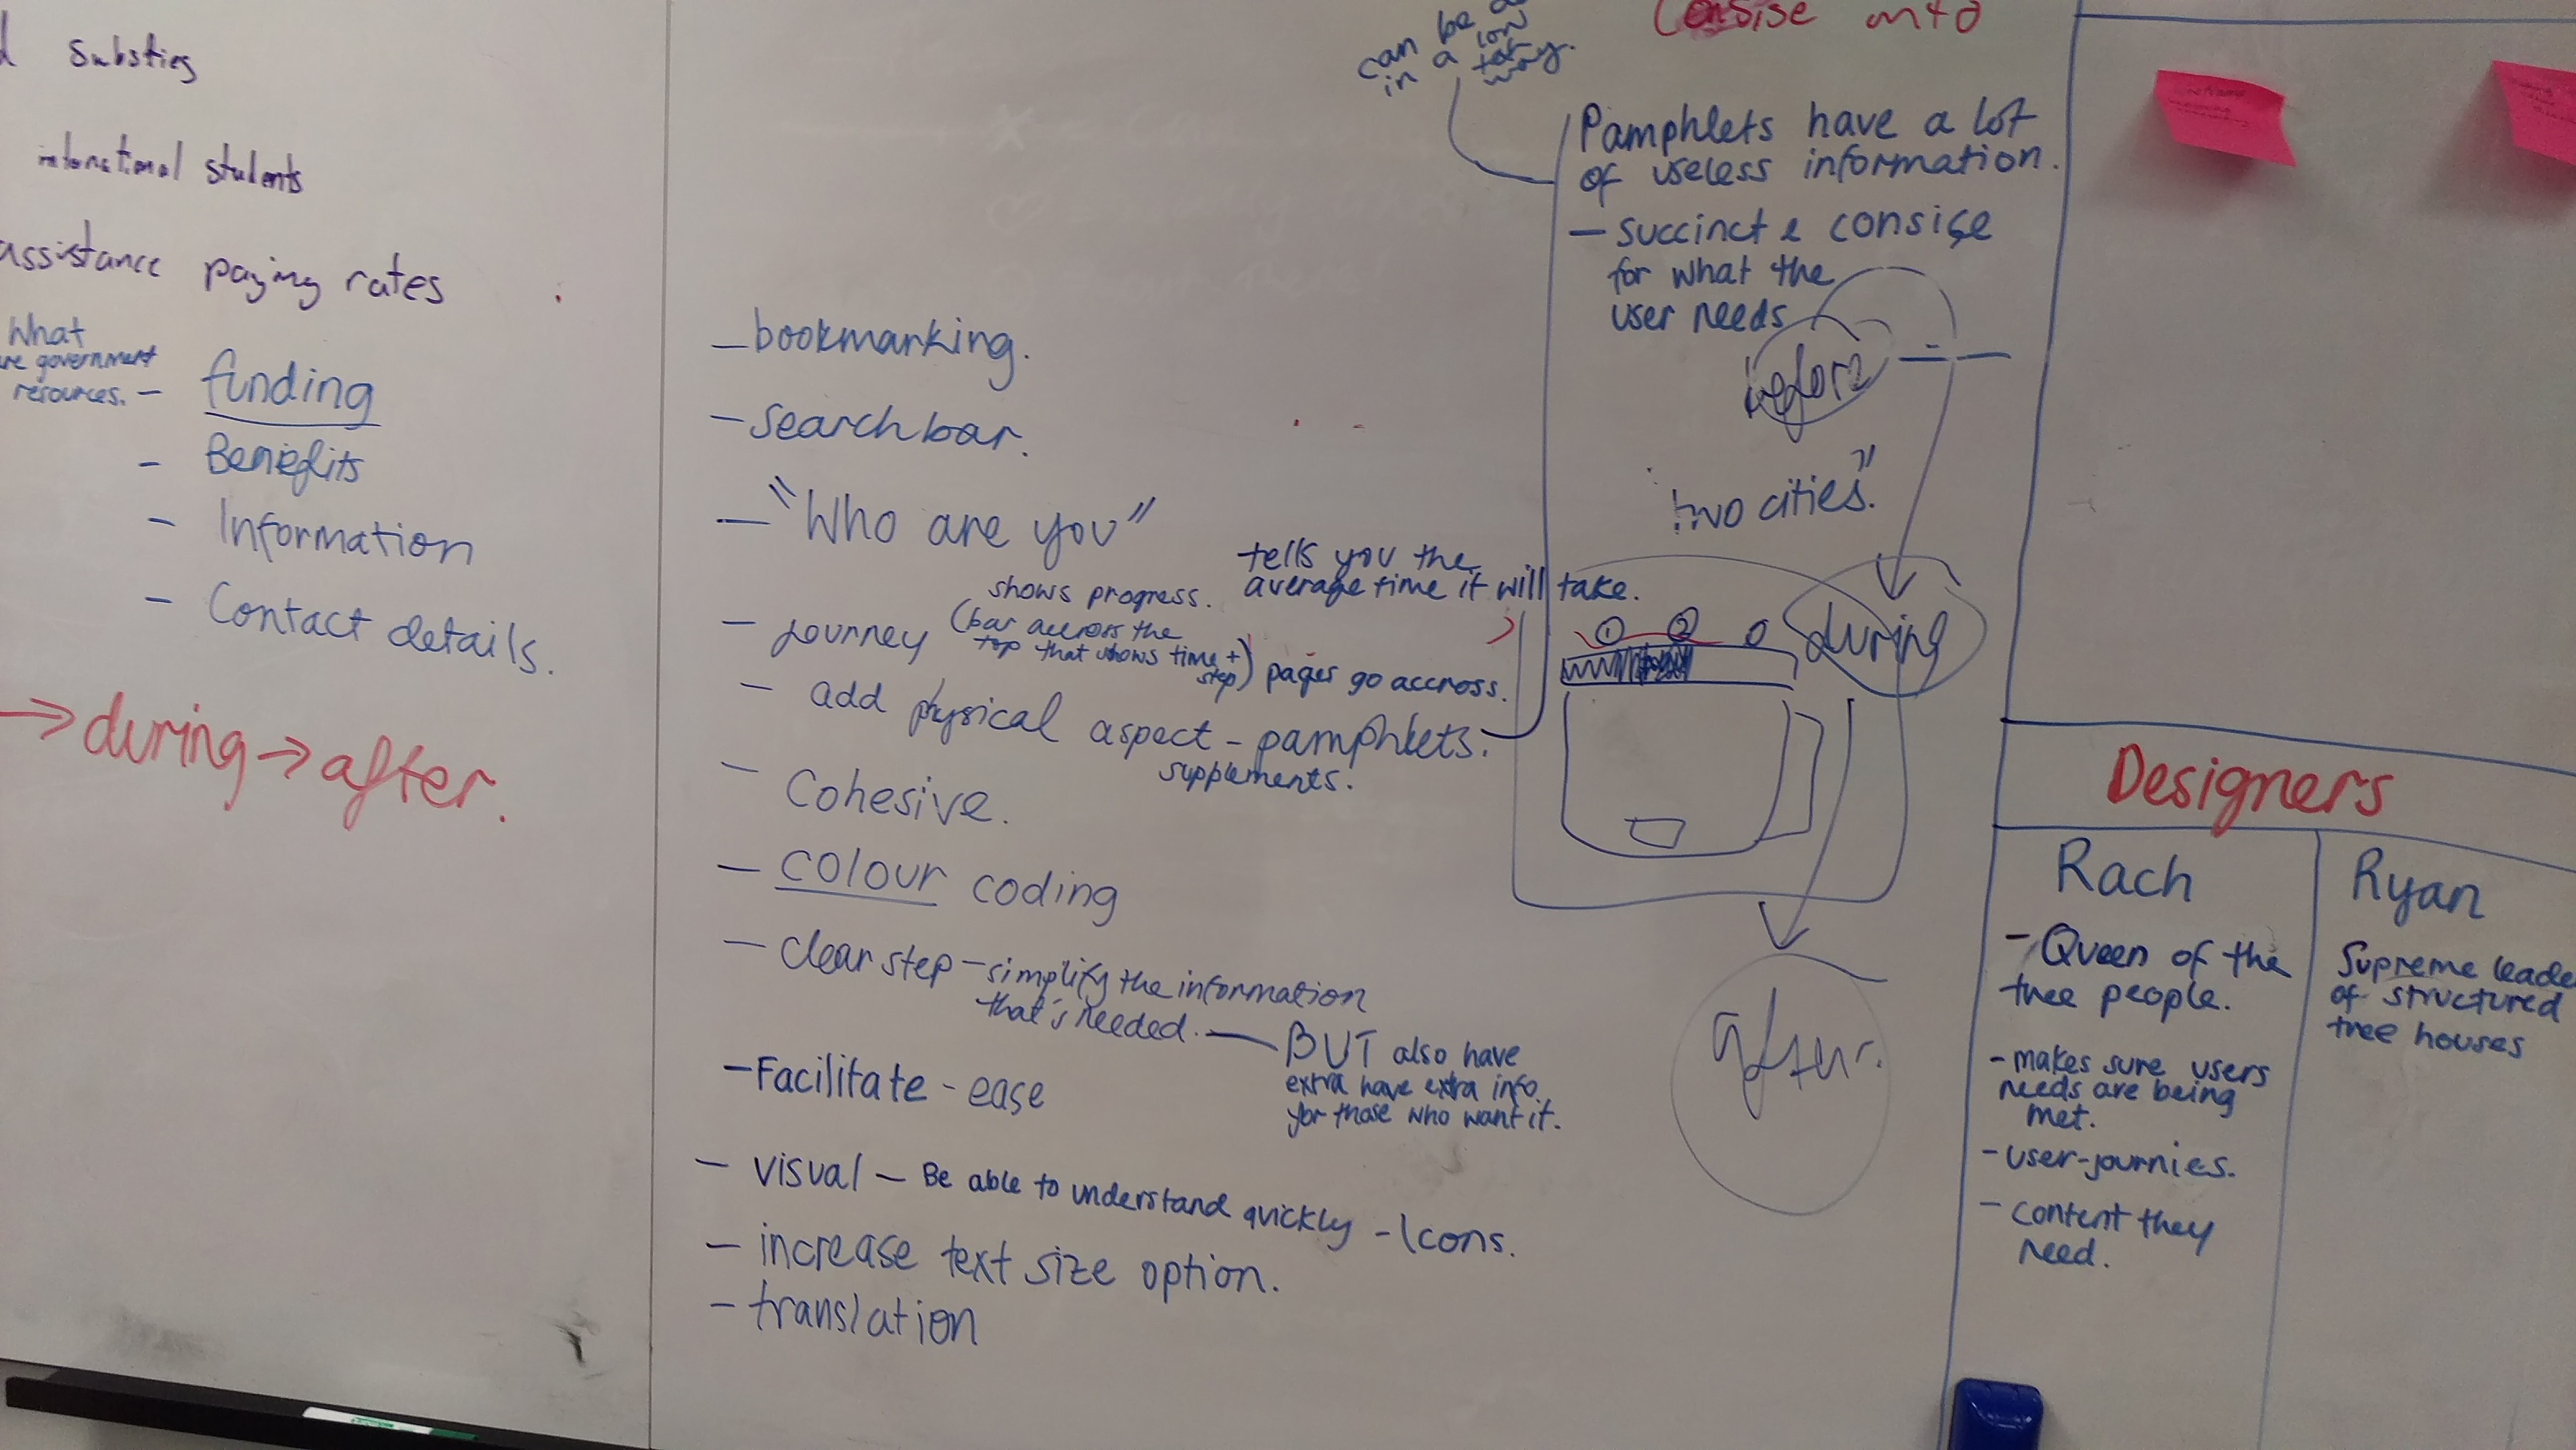 Substies
international students
assistance paying rates
What
government
resources. - funding
- Benefits
- Information
- Contact details.
→ during → after.
- bookmarking.
- Search bar.
- "Who are you"
shows progress.
tells you the
average time it will take.
- journey (bar accross the
top that shows time +
step) pages go accross.
- add physical aspect - pamphlets.
supplements.
- Cohesive.
- colour coding
- Clear step - simplify the information
that's needed. — BUT also have
extra have extra info
for those who want it.
- Facilitate - ease
- visual - Be able to understand quickly - Icons.
- increase text size option.
- translation
can be
in a
way.
Consise into
Pamphlets have a lot
of useless information.
- succinct & consise
for what the
user needs
before
two cities."
1 2
during
after.
Designers
Rach
- Queen of the
tree people.
- makes sure users
needs are being
met.
- user-journies.
- content they
need.
Ryan
Supreme leade
of structured
tree houses